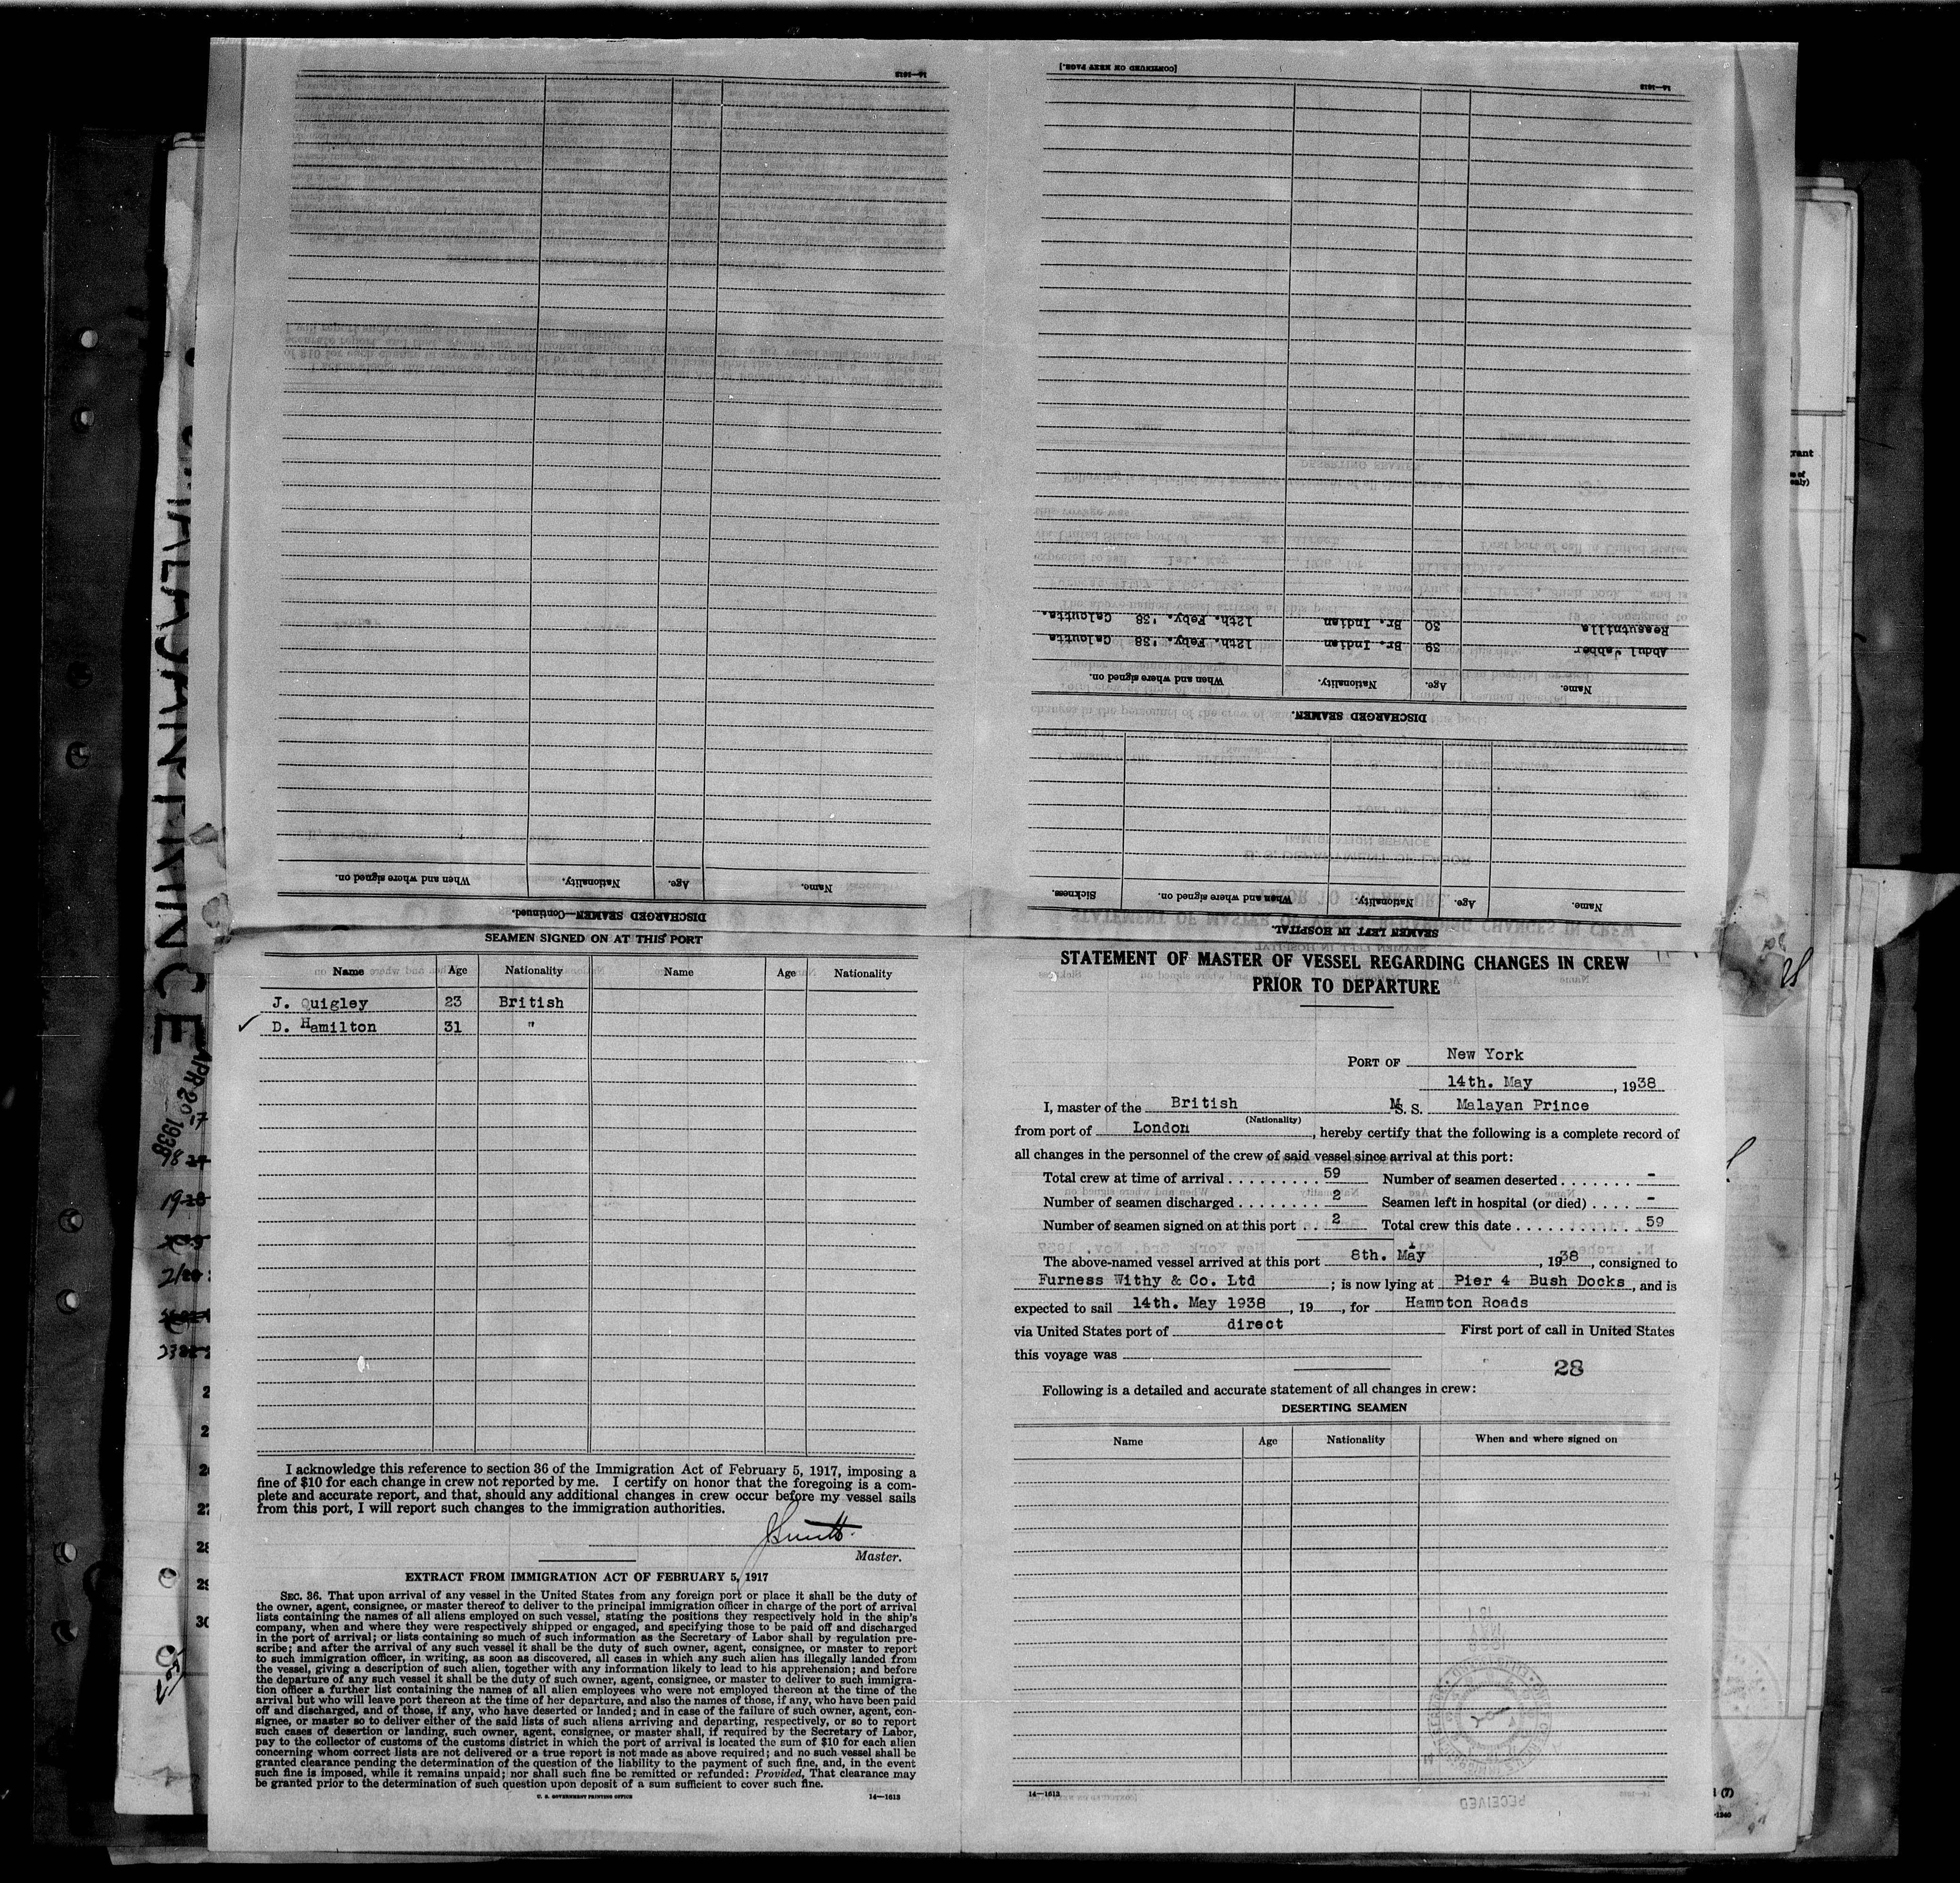 [CONTINUED ON NEXT PAGE.]
14—1613
14—1613
Reasutnilla
30
Br. Indian
12th. Feby. '38 Calcutta.
Abdul Jabber
39
Br. Indian
12th. Feby. '38 Calcutta
Name.
Age.
Nationality.
When and where signed on.
DISCHARGED SEAMEN.
Name.
Age.
Nationality.
When and where signed on.
Sickness.
SEAMEN LEFT IN HOSPITAL.
Name.
Age.
Nationality.
When and where signed on.
DISCHARGED SEAMEN—Continued.
MALAYAN PRINCE
APR 20 1938
SEAMEN SIGNED ON AT THIS PORT
Name Age Nationality Name Age Nationality
J. Quigley 23 British
D. Hamilton 31 "
I acknowledge this reference to section 36 of the Immigration Act of February 5, 1917, imposing a
fine of $10 for each change in crew not reported by me. I certify on honor that the foregoing is a com-
plete and accurate report, and that, should any additional changes in crew occur before my vessel sails
from this port, I will report such changes to the immigration authorities.
Master.
EXTRACT FROM IMMIGRATION ACT OF FEBRUARY 5, 1917
SEC. 36. That upon arrival of any vessel in the United States from any foreign port or place it shall be the duty of
the owner, agent, consignee, or master thereof to deliver to the principal immigration officer in charge of the port of arrival
lists containing the names of all aliens employed on such vessel, stating the positions they respectively hold in the ship's
company, when and where they were respectively shipped or engaged, and specifying those to be paid off and discharged
in the port of arrival; or lists containing so much of such information as the Secretary of Labor shall by regulation pre-
scribe; and after the arrival of any such vessel it shall be the duty of such owner, agent, consignee, or master to report
to such immigration officer, in writing, as soon as discovered, all cases in which any such alien has illegally landed from
the vessel, giving a description of such alien, together with any information likely to lead to his apprehension; and before
the departure of any such vessel it shall be the duty of such owner, agent, consignee, or master to deliver to such immigra-
tion officer a further list containing the names of all alien employees who were not employed thereon at the time of the
arrival but who will leave port thereon at the time of her departure, and also the names of those, if any, who have been paid
off and discharged, and of those, if any, who have deserted or landed; and in case of the failure of such owner, agent, con-
signee, or master so to deliver either of the said lists of such aliens arriving and departing, respectively, or so to report
such cases of desertion or landing, such owner, agent, consignee, or master shall, if required by the Secretary of Labor,
pay to the collector of customs of the customs district in which the port of arrival is located the sum of $10 for each alien
concerning whom correct lists are not delivered or a true report is not made as above required; and no such vessel shall be
granted clearance pending the determination of the question of the liability to the payment of such fine, and, in the event
such fine is imposed, while it remains unpaid; nor shall such fine be remitted or refunded: Provided, That clearance may
be granted prior to the determination of such question upon deposit of a sum sufficient to cover such fine.
U. S. GOVERNMENT PRINTING OFFICE 14—1613
STATEMENT OF MASTER OF VESSEL REGARDING CHANGES IN CREW
PRIOR TO DEPARTURE
PORT OF New York
14th. May, 1938
I, master of the British M. S. S. Malayan Prince
(Nationality)
from port of London, hereby certify that the following is a complete record of
all changes in the personnel of the crew of said vessel since arrival at this port:
Total crew at time of arrival . . . . . . . . . 59 Number of seamen deserted . . . . . . . -
Number of seamen discharged . . . . . . . . 2 Seamen left in hospital (or died) . . . . -
Number of seamen signed on at this port . . 2 Total crew this date . . . . . . . . . . 59
The above-named vessel arrived at this port 8th. May, 1938, consigned to
Furness Withy & Co. Ltd; is now lying at Pier 4 Bush Docks, and is
expected to sail 14th. May 1938, 19, for Hampton Roads
via United States port of direct First port of call in United States
this voyage was
28
Following is a detailed and accurate statement of all changes in crew:
DESERTING SEAMEN
Name Age Nationality When and where signed on
14—1613
RECEIVED